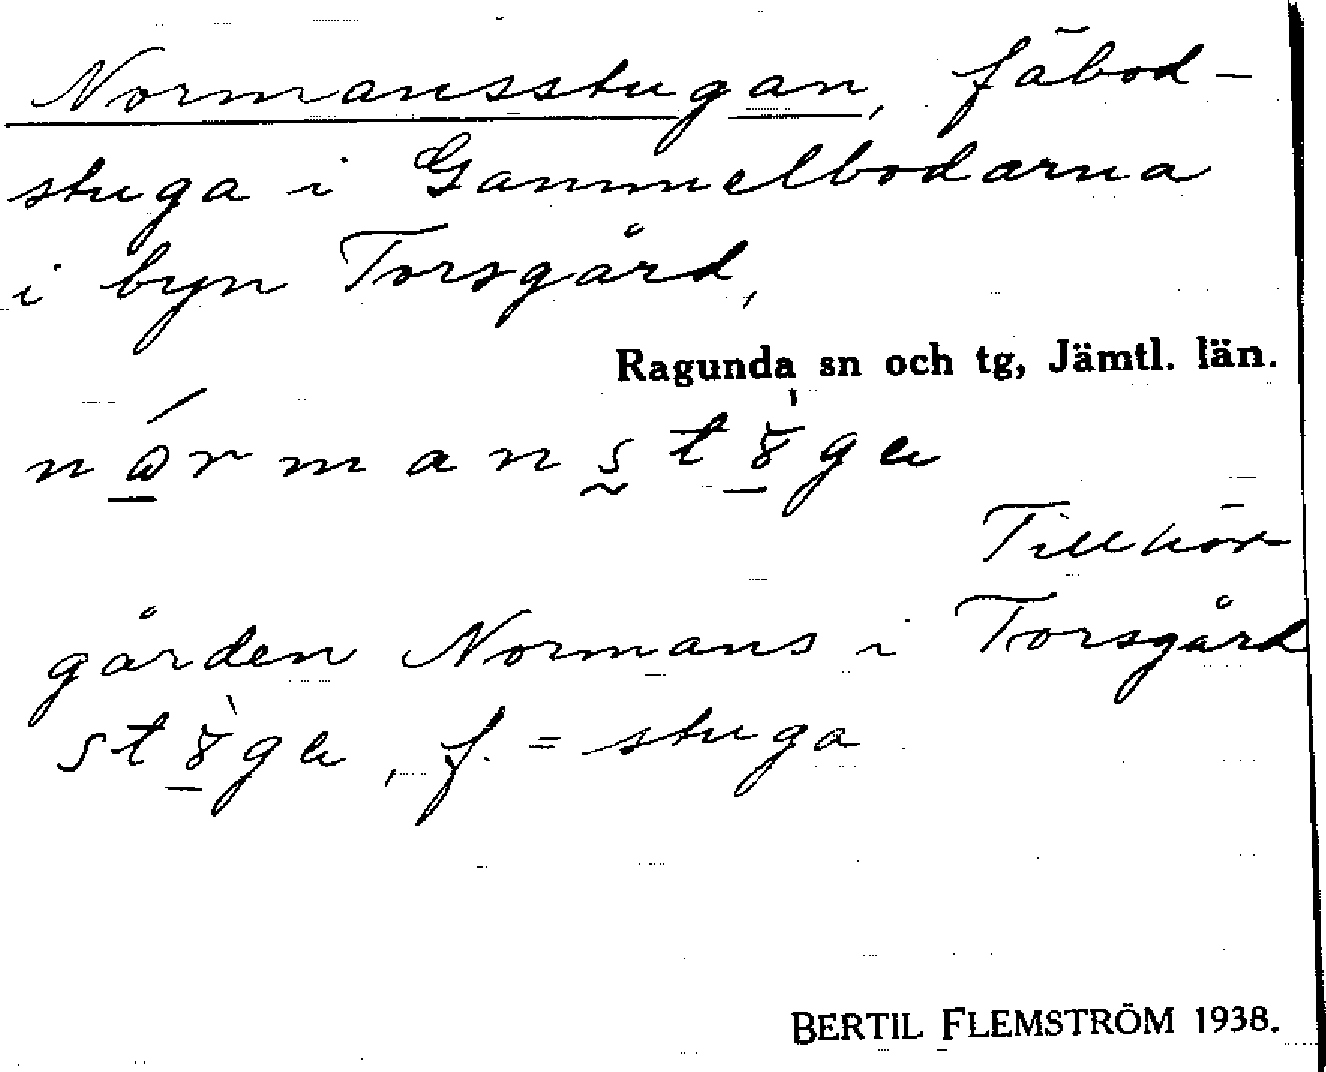 Normansstugan, fäbod-
stuga i Gammelbodarna
i byn Torsgård,
Ragunda sn och tg, Jämtl. län.
Tillhör
gården Normans i Torsgård
f. = stuga
BERTIL FLEMSTRÖM 1938.